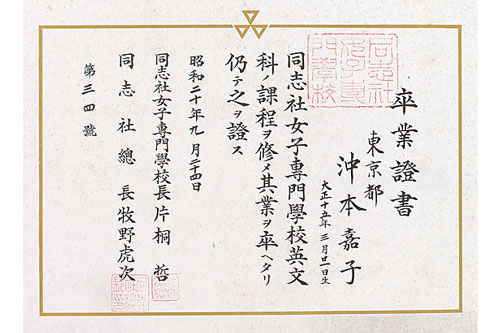 卒業證書
東京都
沖本嘉子
大正十五年三月廿一生
同志社女子專門學校英文
科ノ課程ヲ修メ其業ヲ卒ヘタリ
仍テ之ヲ證ス
昭和二十年九月二十四日
同志社女子專門學校長片桐哲
同志社總長牧野虎次
第三四號
同志社
女子專
門學校